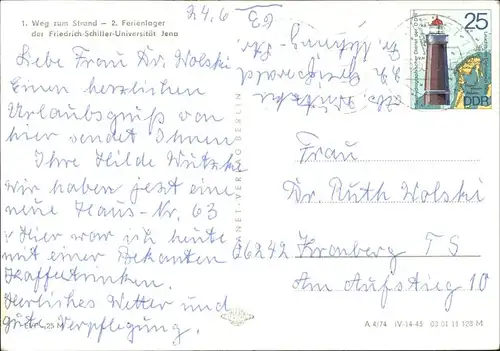 1. Weg zum Strand — 2. Ferienlager
der Friedrich-Schiller-Universität Jena
24.6
63
Liebe Frau Dr. Wolski
Einen herzlichen
Urlaubsgruß von
hier sendet Ihnen
Ihre Hilde
wir haben jetzt eine
neue Haus-Nr. 63
Hier war ich heute
mit einer Bekannten
Kaffeetrinken.
Herrliches Wetter und
gute Verpflegung.
25 M
PLANET-VERLAG BERLIN
25
DDR
Frau
Dr. Ruth Wolski
6242 Kronberg TS
Am Aufstieg 10
A 4/74 IV-14-45 03 01 11 128 M